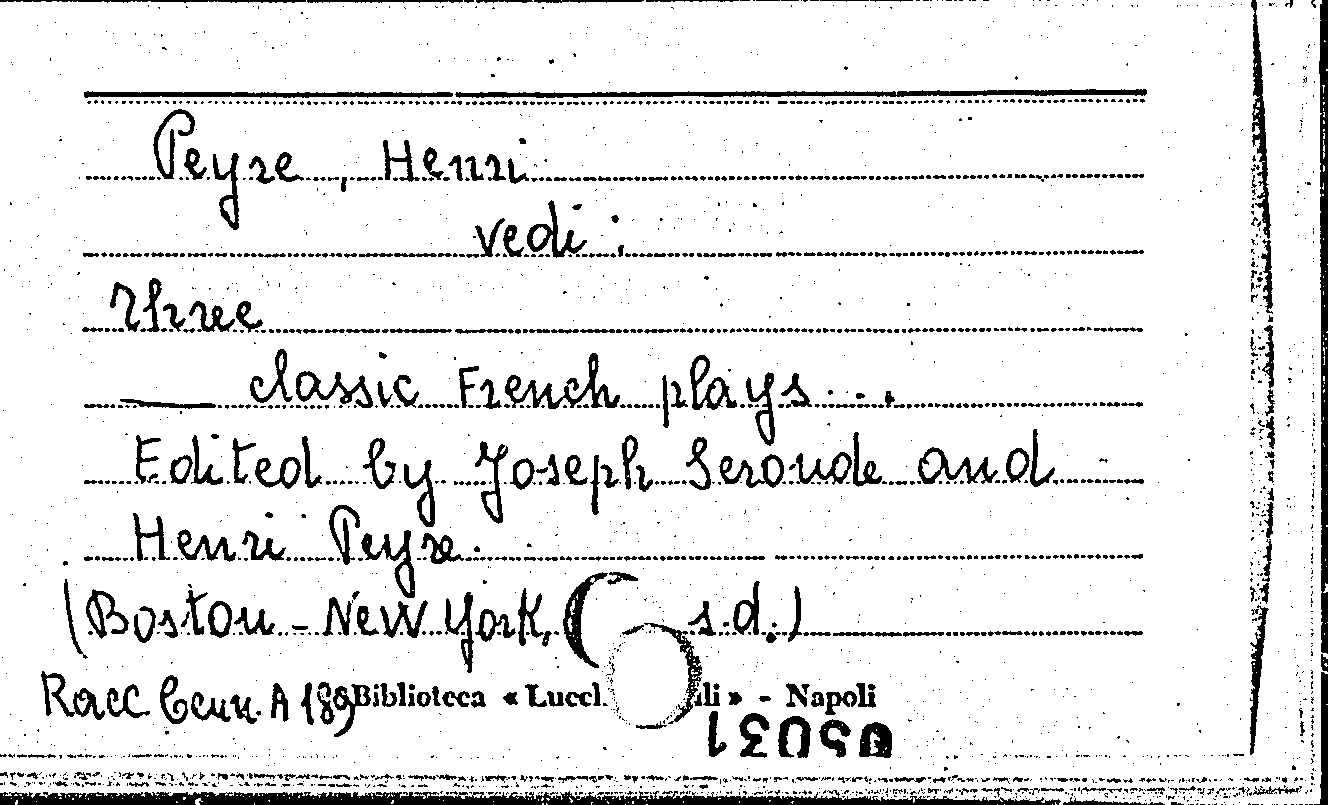 Peyre, Henri
vedi:
Three
___ classic French plays...
Edited by Joseph Seronde and
Henri Peyre.
(Boston - New York, s.d.)
Racc. Cenn. A 189 Biblioteca « Lucch li » - Napoli